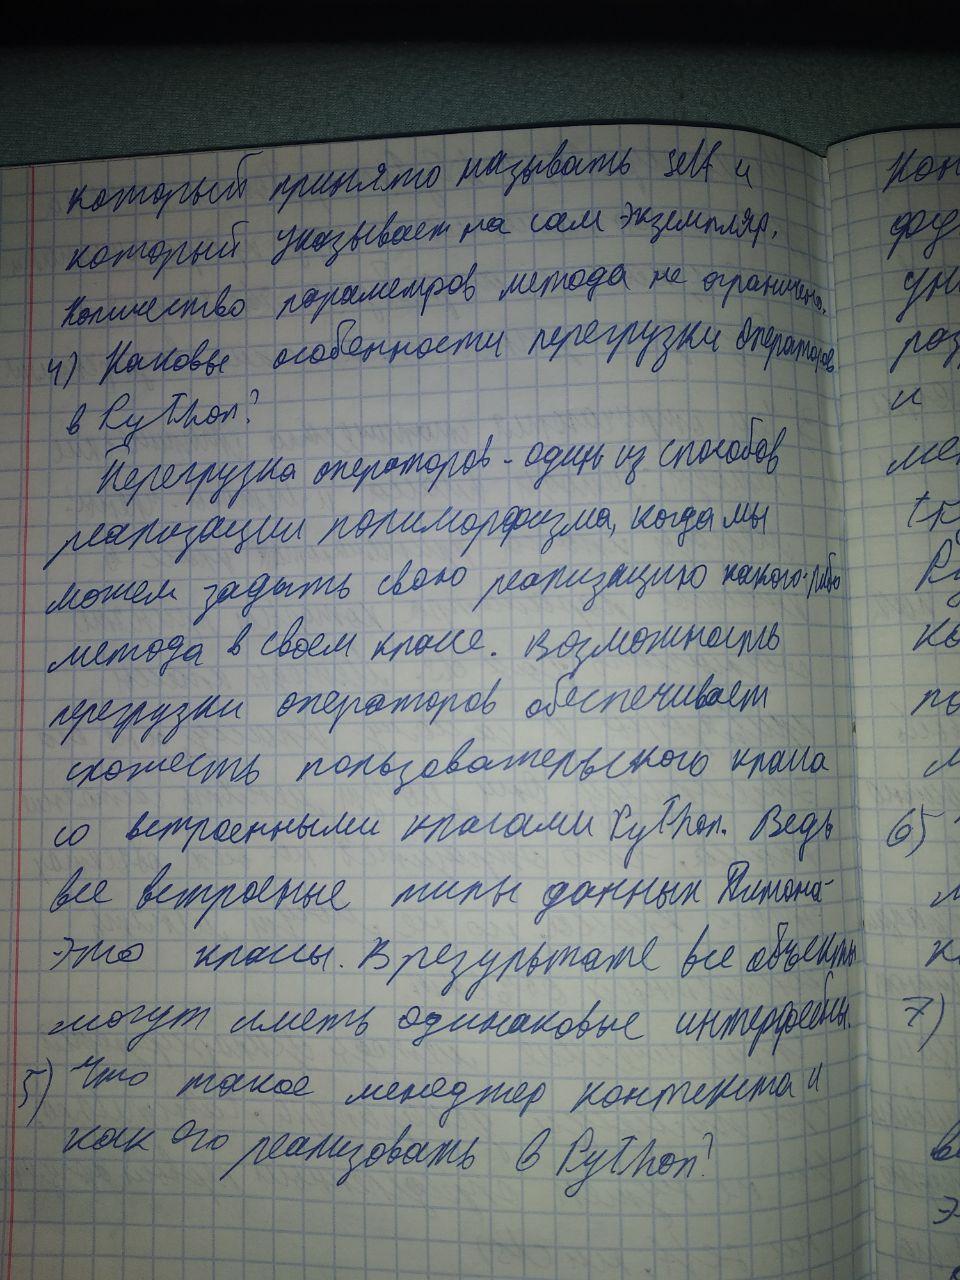 который принято называть self и
который указывает на сам экземпляр.
Количество параметров метода не ограничено.
4) Каковы особенности перегрузки операторов
в Python?
Перегрузка операторов - один из способов
реализации полиморфизма, когда мы
можем задать свою реализацию какого-либо
метода в своем классе. Возможность
перегрузки операторов обеспечивает
схожесть пользовательского класса
со встроенными классами Python. Ведь
все встроеные типы данных Питона-
это классы. В результате все объекты
могут иметь одинаковые интерфейсы.
5) Что такое менеджер контекста и
как его реализовать в Python?
и
6)
7)